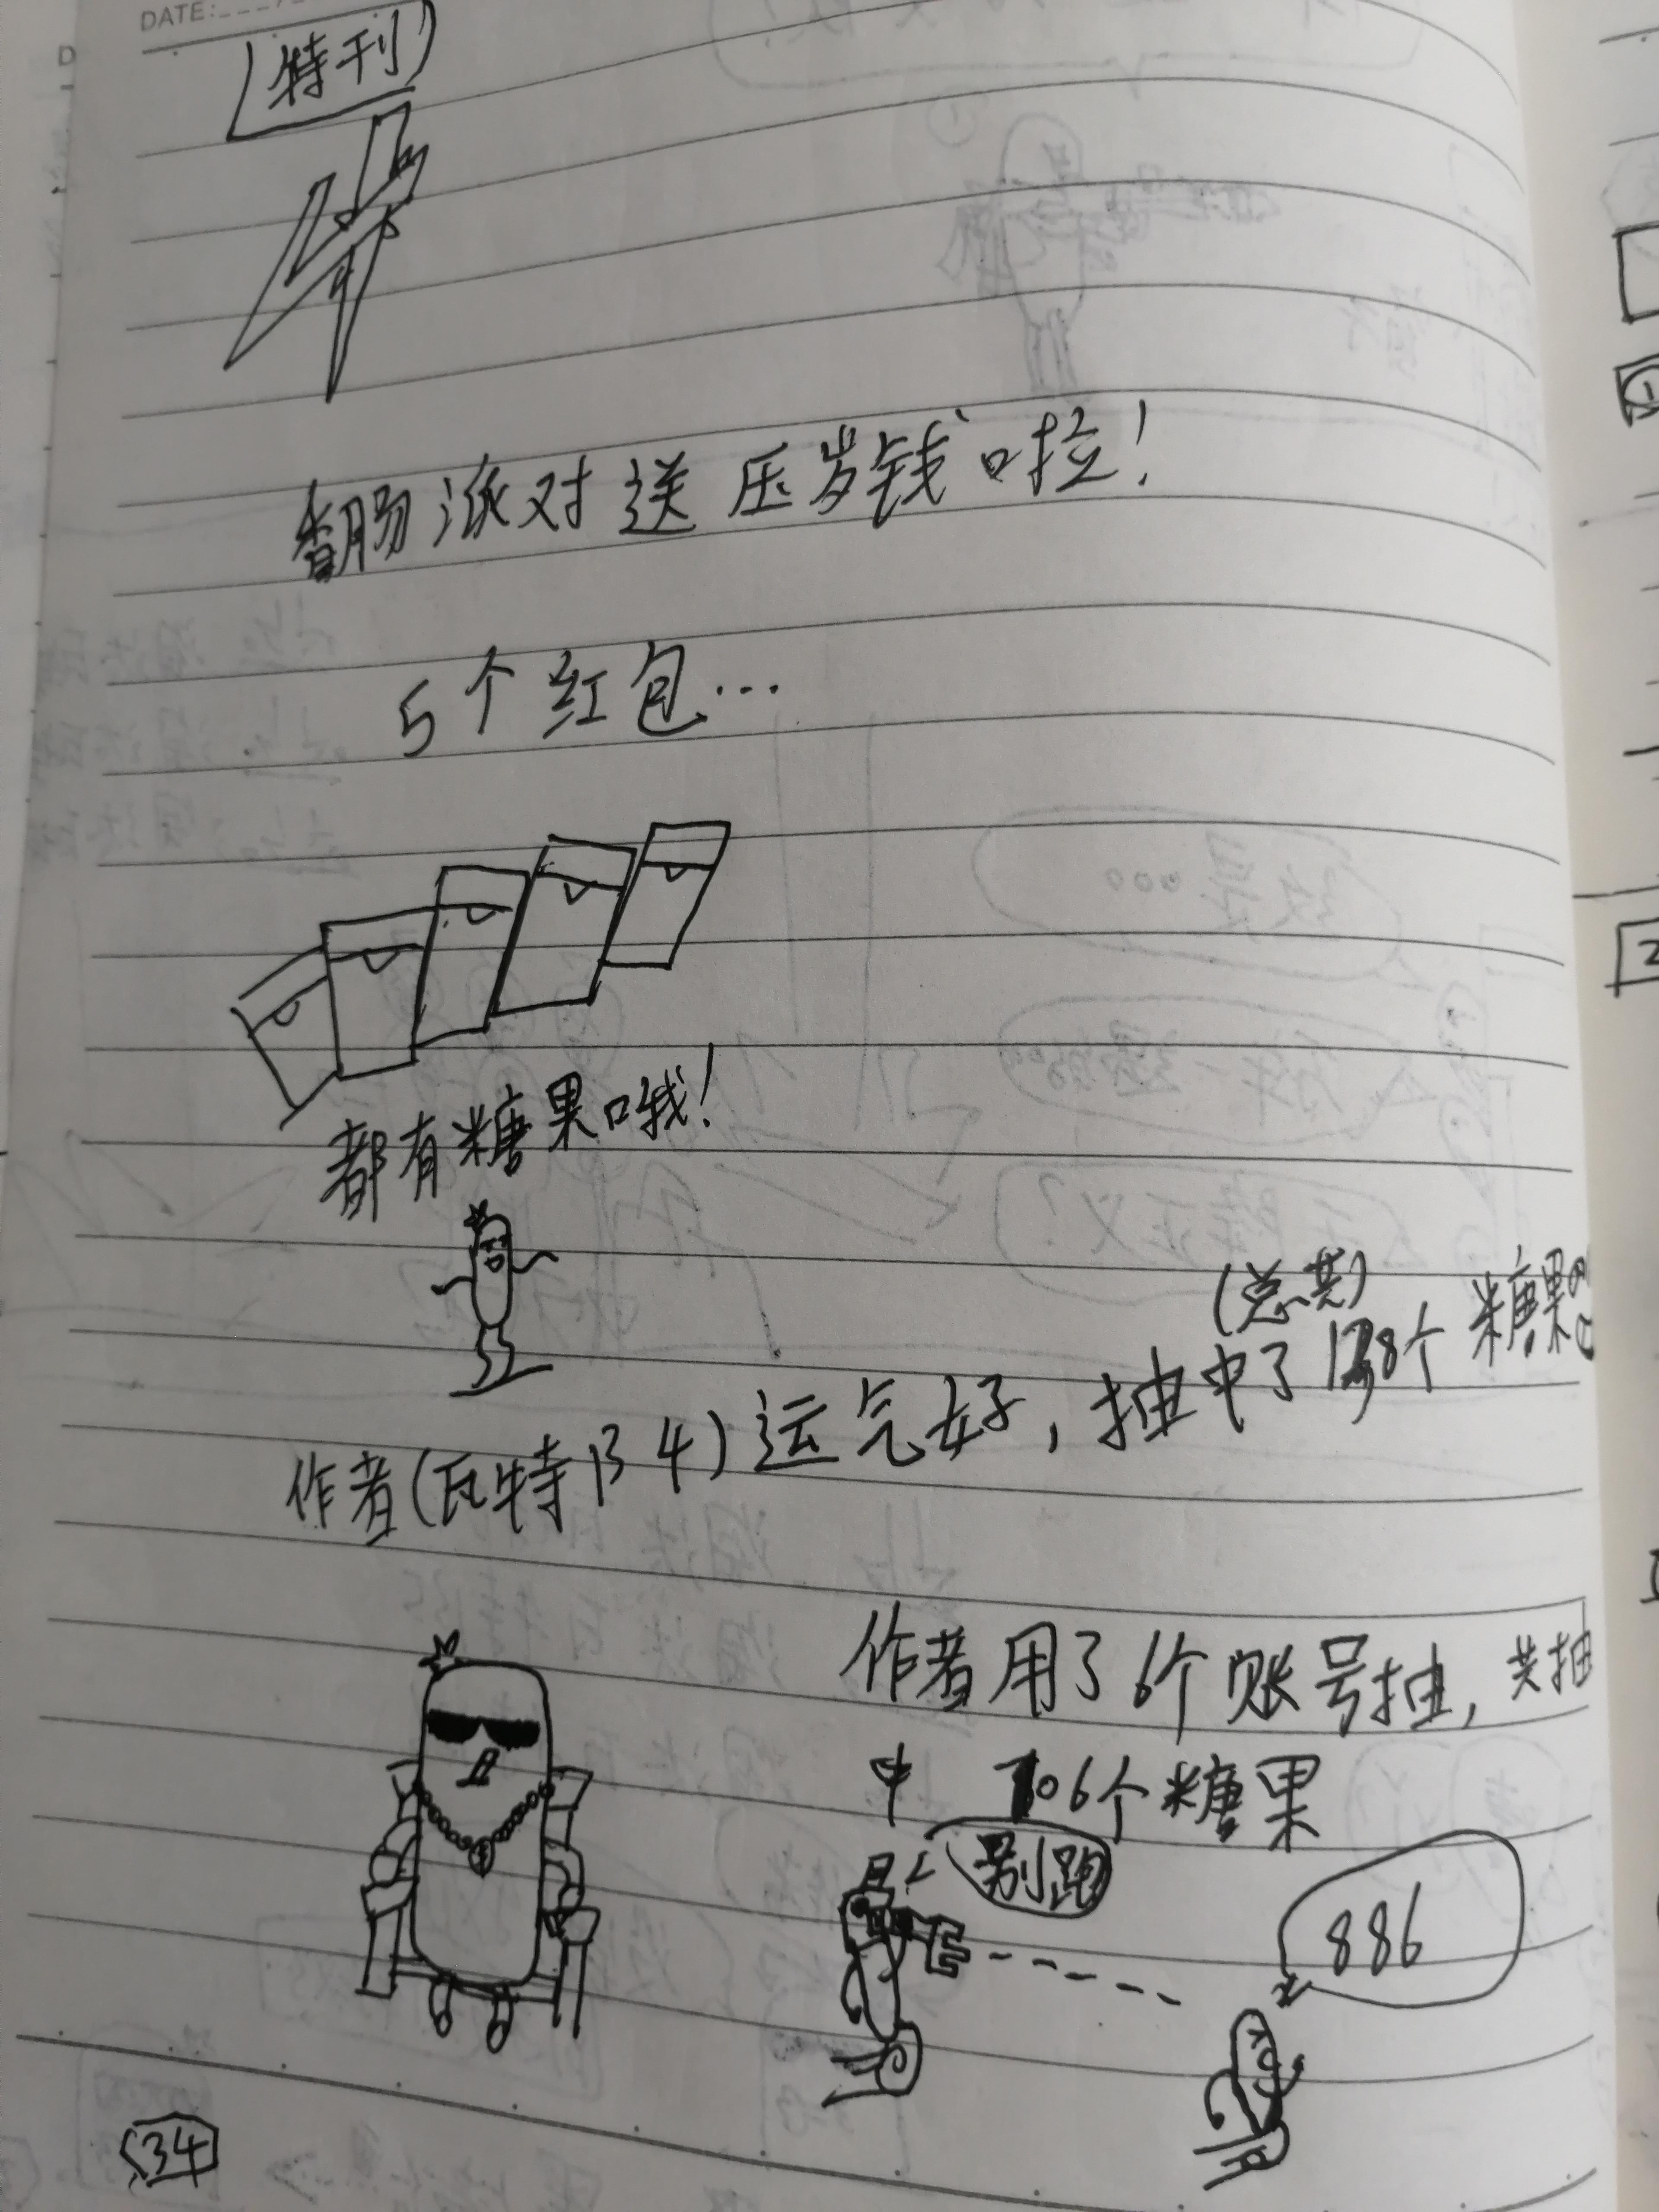 DATE:
特刊
香肠派对送压岁钱啦！
5个红包…
都有糖果哦！
(总共)
作者(瓦特β4)运气好，抽中了138个糖果
作者用了6个账号抽，共抽
中 106个糖果
别跑
886
34